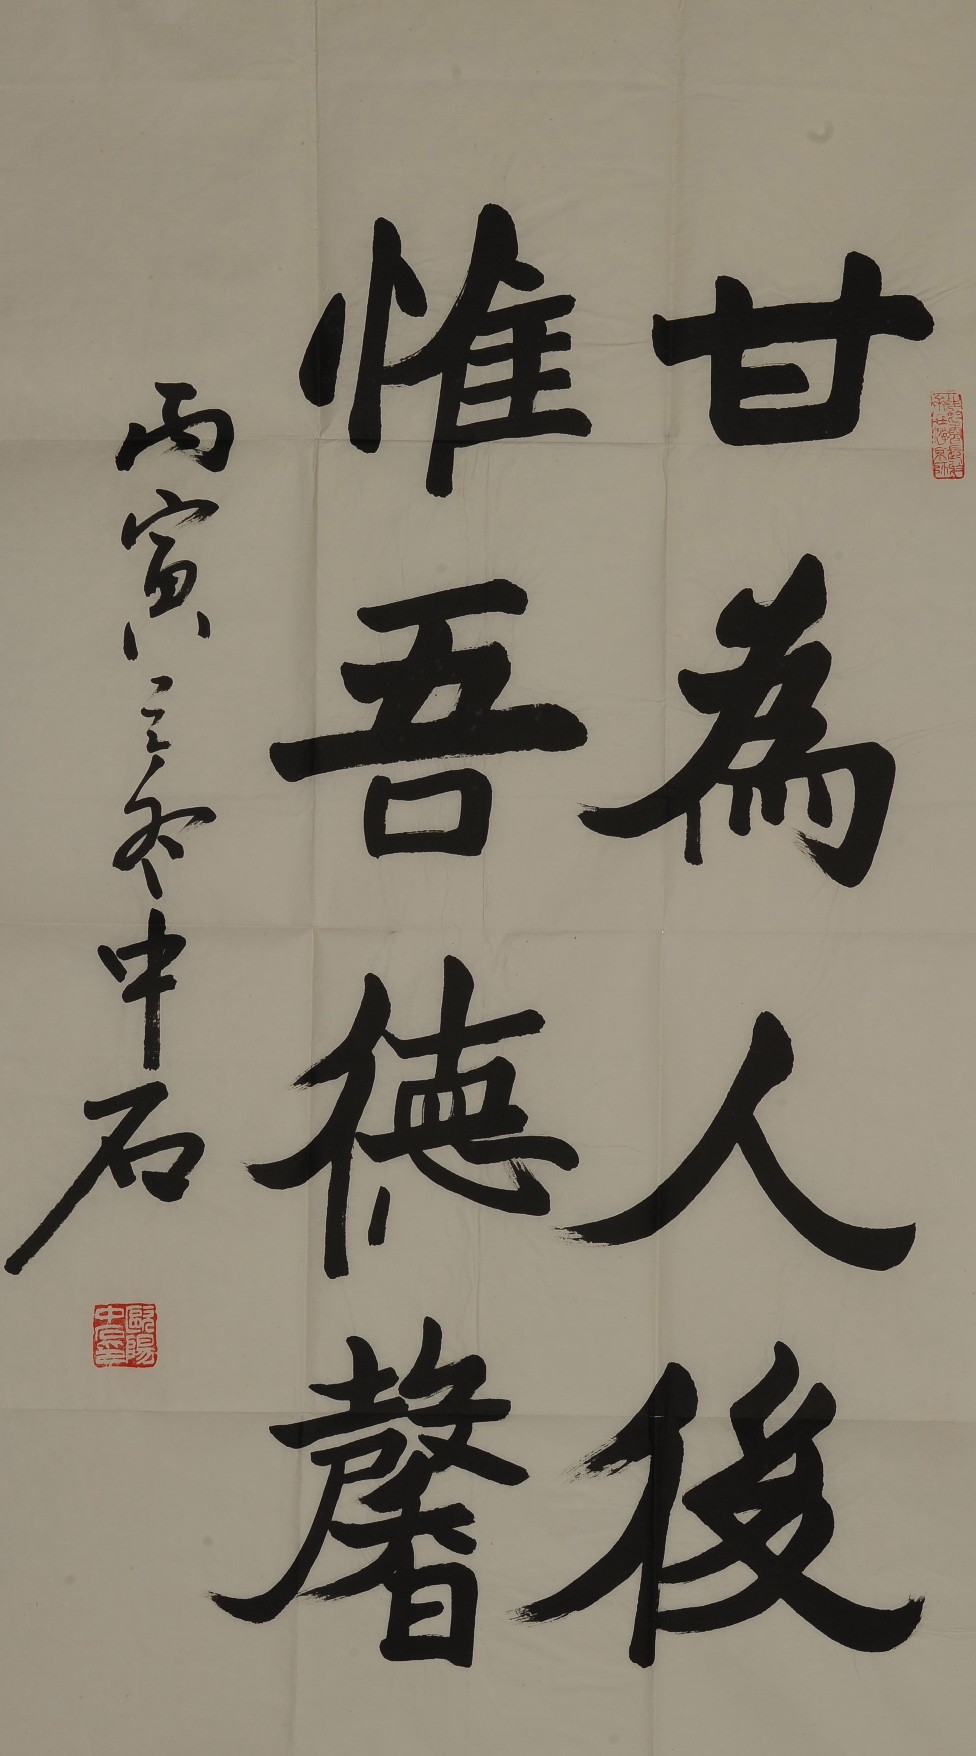 甘為人後
惟吾德馨
丙寅之冬中石
歐陽中石